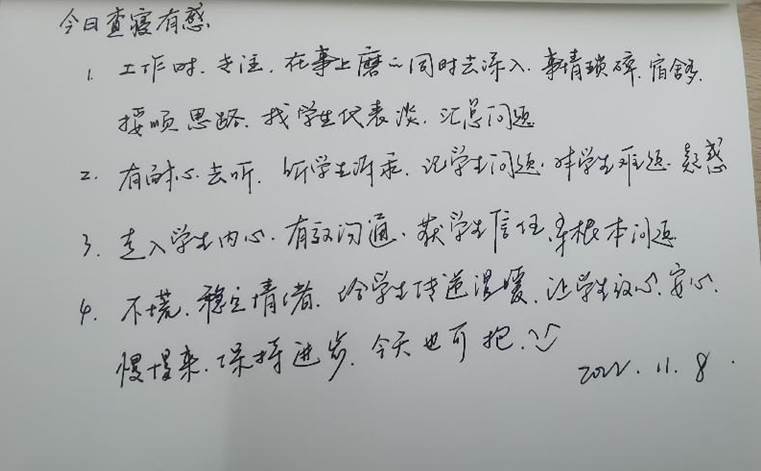 今日查寝有感
1. 工作时.专注.在事上磨.同时去深入.事情琐碎.宿舍多.
接顺思路.找学生代表谈.汇总问题
2. 有耐心去听.听学生诉求.记学生问题.对学生难题.疑惑
3. 走入学生内心.有效沟通.获学生信任.寻根本问题
4. 不慌.稳定情绪.给学生传递温暖.让学生放心.安心.
慢慢来.保持进步.今天也可抱.
2022.11.8.